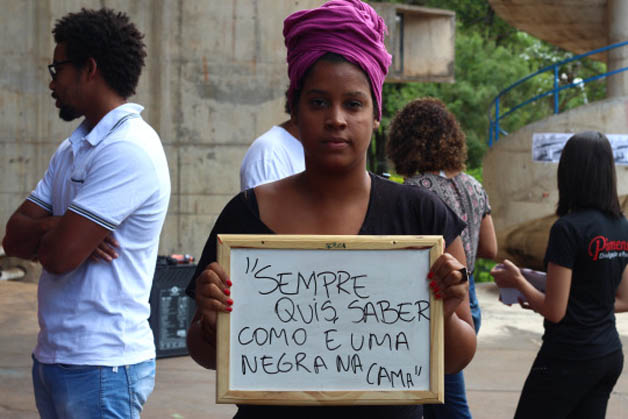 "SEMPRE
QUIS SABER
COMO E UMA
NEGRA NA
CAMA"